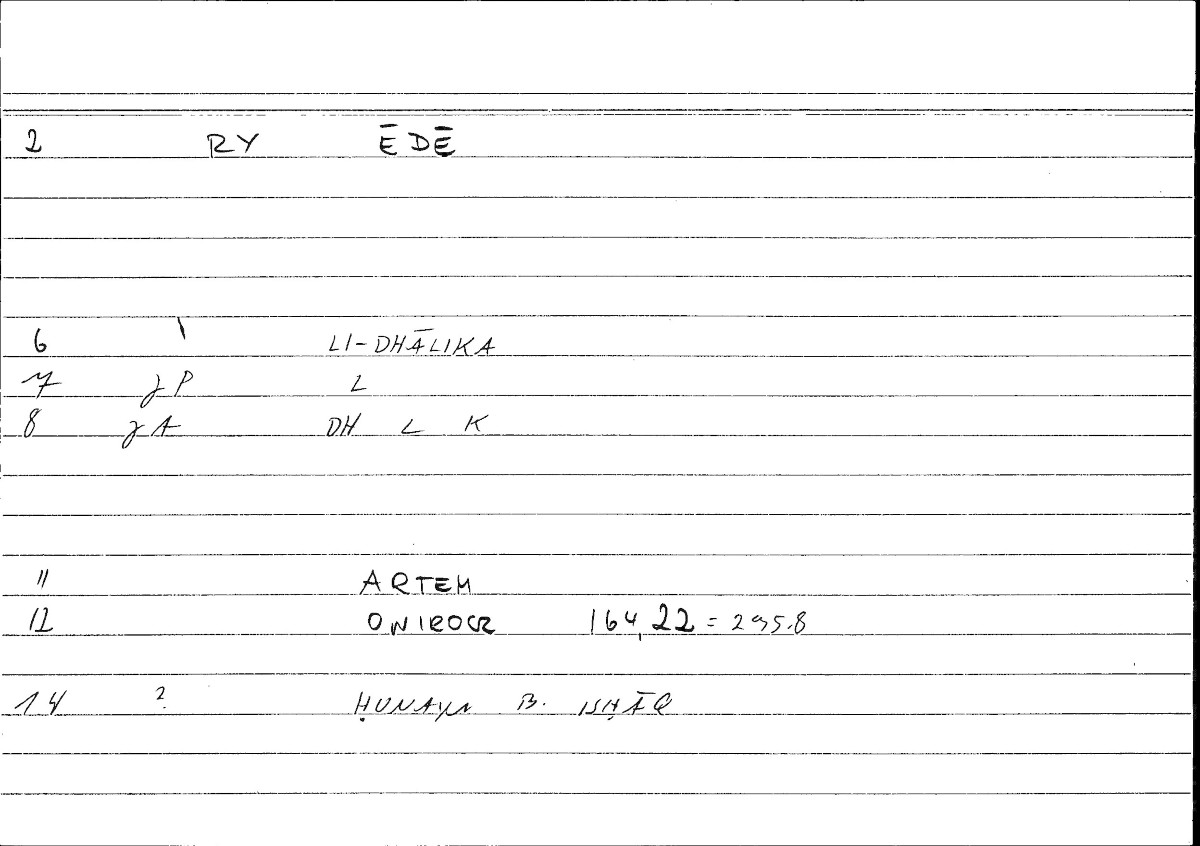 2 RY ĒDĒ
6 \ LI-DHĀLIKA
7 γP L
8 γA DH L K
11 ARTEM
12 ONIROCR 164,22 = 295.8
14 ? ḤUNAYN B. ISḤĀQ